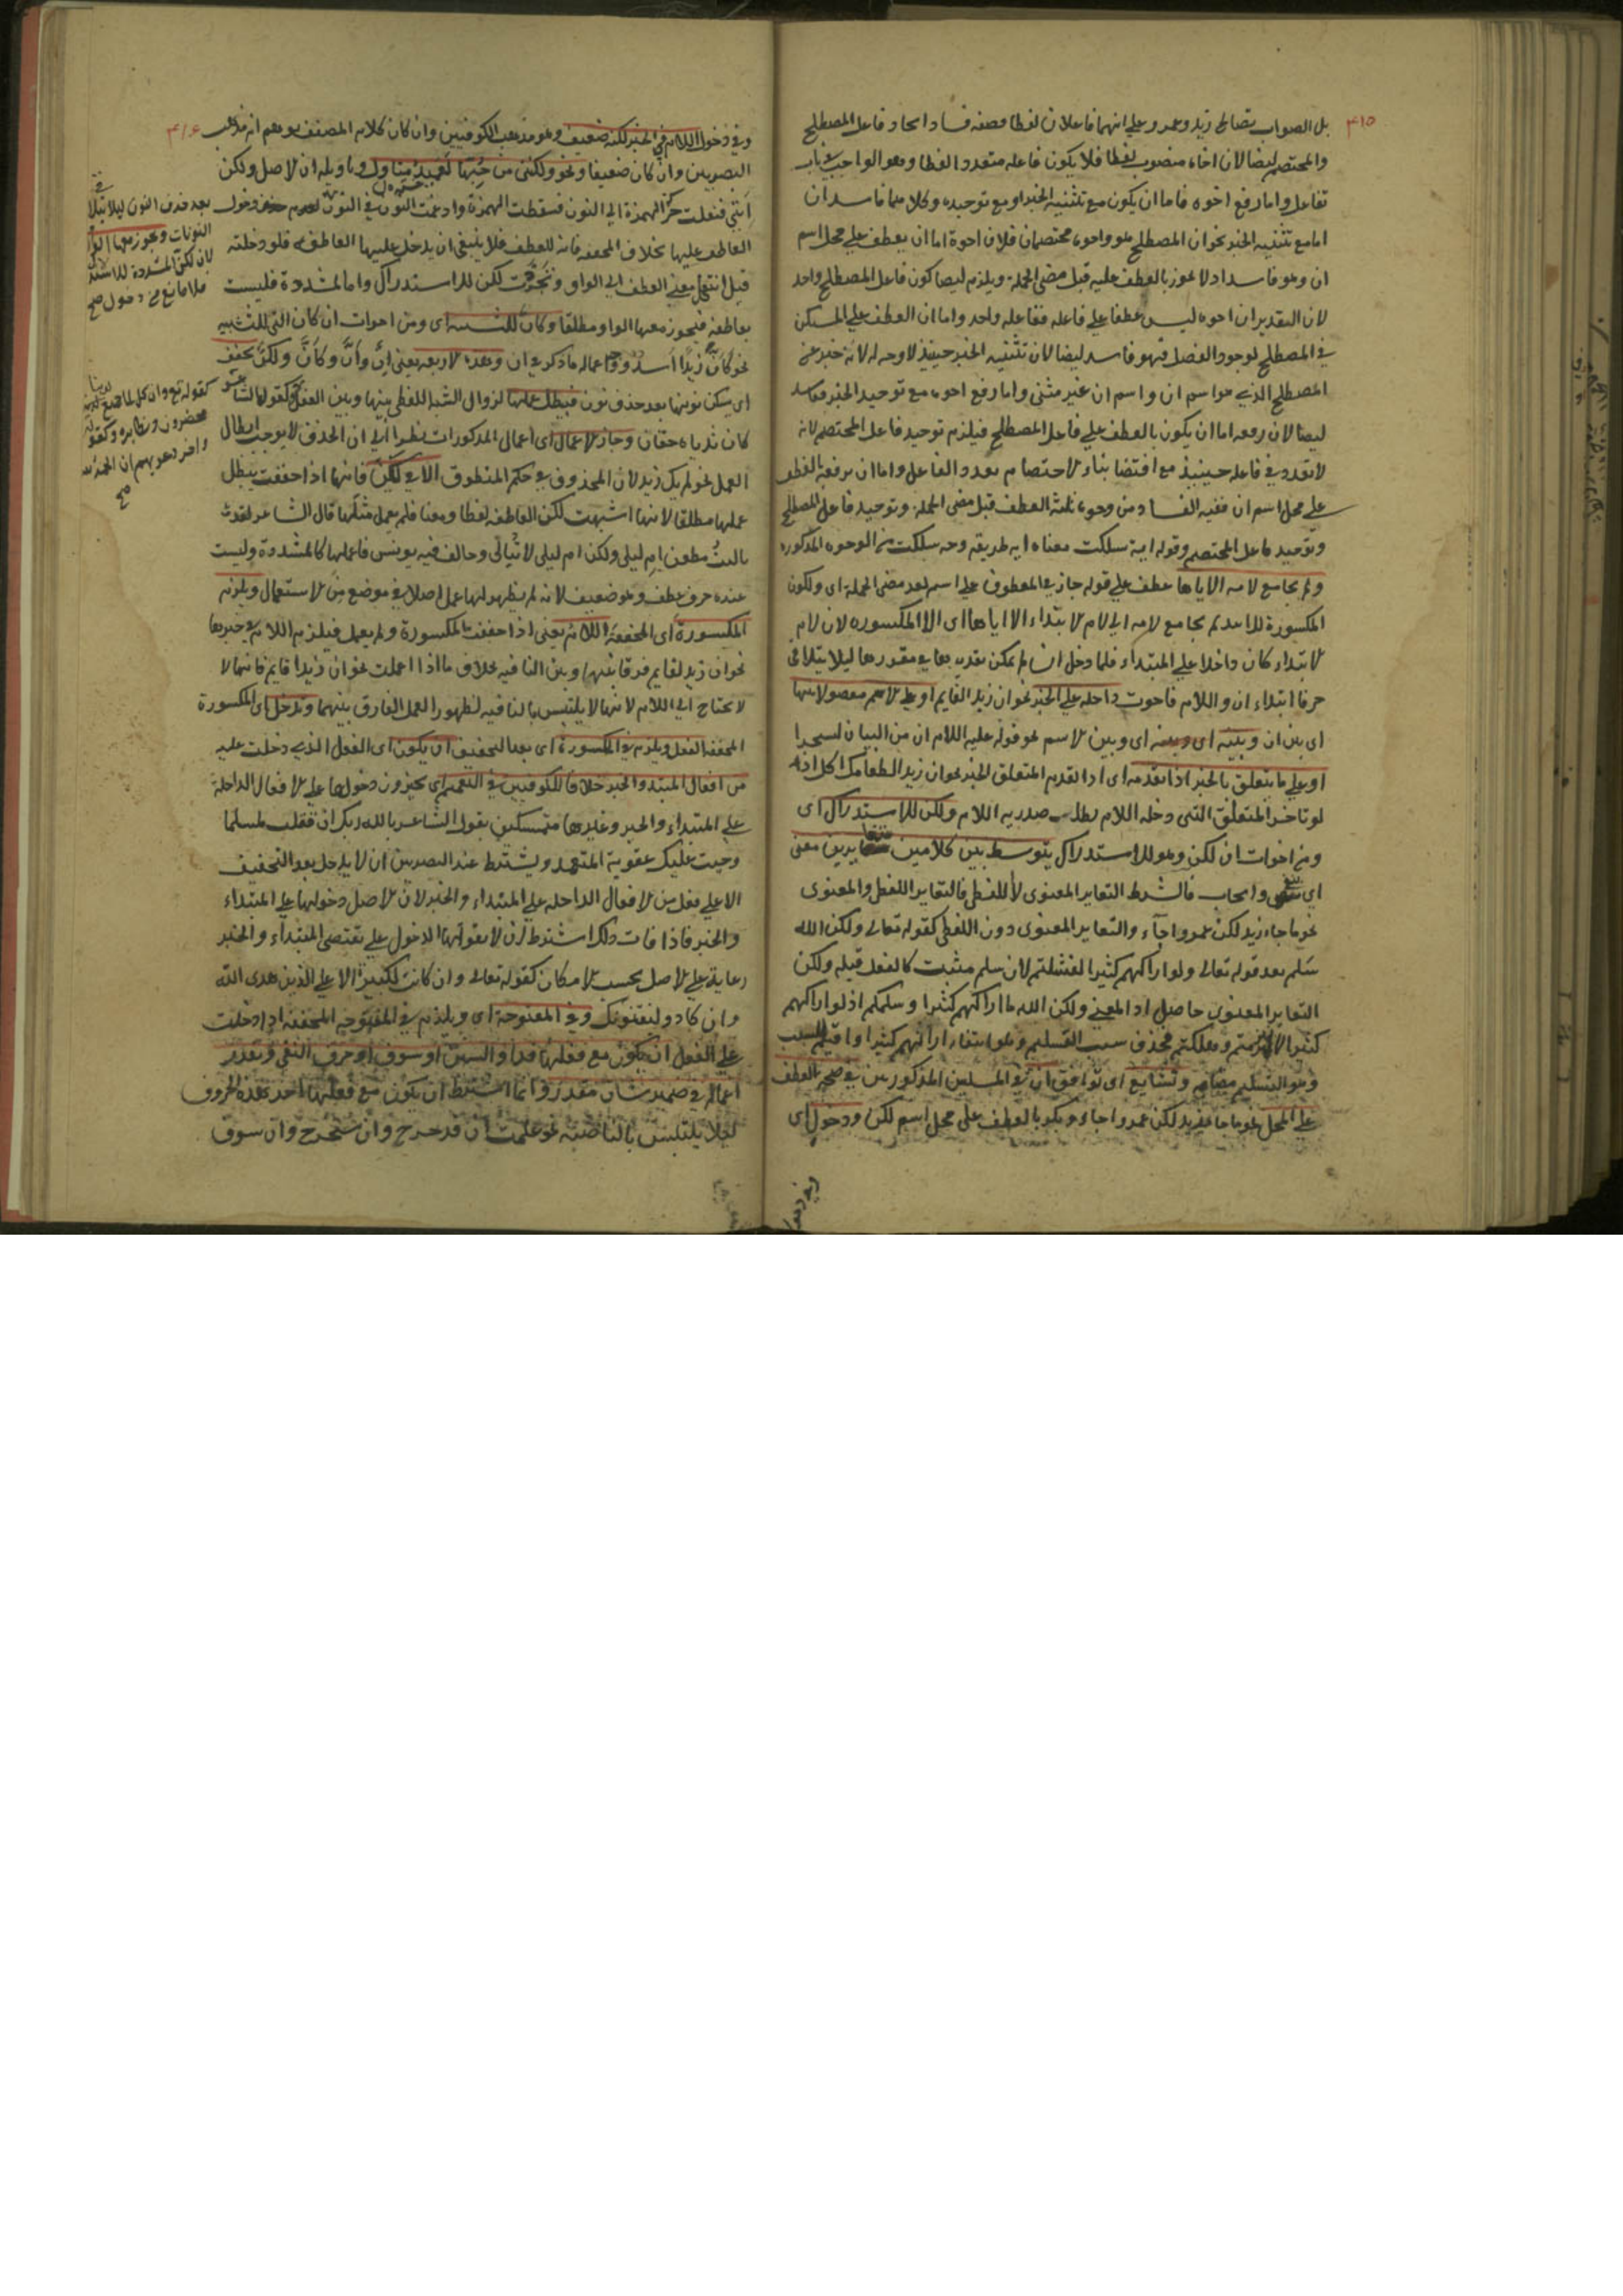 ٣١٥
بل الصواب تصالح زيد وعمرو على انهما فاعلان لفظا وصفه فساد اتحاد فاعل المصطلح
والمختصم ايضا لان اخاه منصوب لفظا فلا يكون فاعله متعددا لفظا وهو الواجب في باب
تفاعل واما رفع اخوه فاما ان يكون مع تثنية الخبر او مع توحيده وكلاهما فاسدان
اما مع تثنية الخبر نحو ان المصطلح هو واخوه مختصمان فلان اخوه اما ان يعطف على محل اسم
ان وهو فاسد اذ لا يجوز بالعطف عليه قبل مضى الجملة ويلزم ايضا كون فاعل المصطلح واحد
لان التقدير ان اخوه ليس عطفا على فاعله ففاعله واحد واما ان العطف على المستكن
في المصطلح لوجود الفصل فهو فاسد ايضا لان تثنية الخبر حينئذ لا وجه له لانه خبر عن
المصطلح الذي هو اسم ان واسم ان غير مثنى واما رفع اخوه مع توحيد الخبر ففاسد
ايضا لان رفعه اما ان يكون بالعطف على فاعل المصطلح فيلزم توحيد فاعل المختصم لانه
لا تعدد في فاعله حينئذ مع اقتضاء بناء الاختصام تعدد الفاعل واما ان يرفعه بالعطف
على محل اسم ان ففيه الفساد من وجوه ثلثة العطف قبل مضى الجملة وتوحيد فاعل المصطلح
وتوحيد فاعل المختصم وقوله اية سلكت معناه اية طريقة وجه سلكت من الوجوه المذكورة
ولم يجامع لامه الا اياها عطف على قوله جاز في المعطوف على اسم بعد مضى الجملة اى ولكون
المكسورة للابتداء لم يجامع لامه اى لام الابتداء الا اياها اى الا المكسورة لان لام
الابتداء كان داخلا على المبتداء فلما دخل ان لم يمكن تقديمها في مقدرها ليلا يتلاقى
حرفا ابتداء ان واللام فاخرت داخلة على الخبر نحو ان زيد القايم او على الاسم مفصولا بينها
اى بين ان وبينه اى وبين الاسم نحو قوله عليه السلام ان من البيان لسحرا
او على ما يتعلق بالخبر اذا تقدمه اى اذا تقدم المتعلق الخبر نحو ان زيد الطعامك اكل اذ
لو تاخر المتعلق التى دخله اللام بطلت صدرية اللام ولكن للاستدراك اى
ومن اخوات ان لكن وهو للاستدراك يتوسط بين كلامين متغايرين معنى
اى نفى وايجاب فالشرط التغاير المعنوى لا اللفظى فالتغاير اللفظى والمعنوى
نحو ما جاء زيد لكن عمروا جآء والتغاير المعنوى دون اللفظى كقوله تعالى ولكن الله
سَلّم بعد قوله تعالى ولو اراكهم كثيرا لفشلتم لان سلم مثبت كالفعل قبله ولكن
التغاير المعنوى حاصل اذ المعنى ولكن الله ما اراكهم كثيرا وسلمكم اذ لو اراكهم
كثيرا لانهزمتم وهلكتم فحذف سبب التسليم وهو انتفاء اراكهم كثيرا واقيم السبب
وهو التسليم مقامه وتشايع اى توافق ان في المسلين المذكورين في صحة العطف
على المحل نحو ما جاءني زيد لكن عمروا جاء وبكر بالعطف على محل اسم لكن ودخول اى
٣١٦
وفى دخول اللام في الخبر لكنه ضعيف وهو مذهب الكوفيين وان كان كلام المصنف يوهم انه مذهب
البصريين وان كان ضعيفا ونحو ولكننى من حبها لعميد متاول وتاويله ان الاصل ولكن
اننى فنقلت حركة الهمزة الى النون فسقطت الهمزة وادغمت النون في النون دخول
العاطف عليها بخلاف المخففة فانه للعطف فلا ينبغى ان يدخل عليها العاطف فلو دخلته
قيل انتقل معنى العطف الى الواو وتجردت لكن للاستدراك واما المشددة فليست
بعاطفة فيجوز معها الواو مطلقا وكان للتشبيه اى ومن اخوات ان كان التى للتشبيه
نحو كَانّ زيدًا اسد واعماله ما ذكر في ان وهذه الاربعة يعنى اِنَّ وأنَّ وكأنَّ ولكنَّ تخفف
اى يسكن نونها بعد حذف نون فيبطل عملها لزوال الشبه اللفظى بينها وبين الفعل كقول الشاعر
كان ثدياه حقان وجاز الاعمال اى اعمال المذكورات نظرا الى ان الحذف لا يوجب ابطال
العمل نحو لم يك زيد لان المحذوف في حكم المنطوق الا في لكن فانها اذا خففت يبطل
عملها مطلقا لانها اشبهت لكن العاطفة لفظا ومعنا فلم يعمل مثلها قال الشاعر
ولكن ام ليلى لا تُبالى وخالف فيه يونس فاعملها كالمشددة وليست
عنده حرف عطف وهو ضعيف لانه لم يظهر لها عمل اصلا في موضع من الاستعمال ويلزم
المكسورة اى المخففة اللام يعنى اذا خففت المكسورة ولم يعمل فيلزم اللام في خبرها
نحو ان زيد لقايم فرقا بينها وبين النافية بخلاف ما اذا اعملت نحو ان زيدا قايم فانها لا
لا يحتاج الى اللام لانها لا يلتبس بالنافية لظهور العمل الفارق بينهما وتدخل اى المكسورة
المخففة الفعل ويلزم في المكسورة اى بعد التخفيف ان يكون اى الفعل الذى دخلت عليه
من افعال المبتدء والخبر خلافا للكوفيين في التعميم اى يجيزون دخولها على الافعال الداخلة
على المبتداء والخبر وغيرها متمسكين بقول الشاعر بالله ربك ان قتلت لمسلما
وجبت عليك عقوبة المتعمد ويشترط عند البصريين ان لا يدخل بعد التخفيف
الا على فعل من الافعال الداخلة على المبتداء والخبر لان الاصل دخولها على المبتداء
والخبر فاذا فات ذلك اشترط ان لا يفوتها الدخول على يقتضى المبتداء والخبر
رعاية على الاصل بحسب الامكان كقوله تعالى وان كانت لكبيرة الا على الذين هدى الله
وان كادو ليفتنونك وفى المفتوحة اى ويلزم في المفتوحة المخففة اذا دخلت
على الفعل ان يكون مع فعلها قد او السين او سوف او حرف النفى وتقدر
اعماله في ضمير شان مقدر وانما اشترط ان يكون مع فعلها احد هذه الحروف
ليلا يلتبس بالناصبة نحو علمت ان قد خرج وان سيخرج وان سوف
بعد حذف النون ليلا
النونات ويجوز معها الواو
لان لكن المشددة للاستد
فلا مانع من دخول صح
كقوله تع وان كل لما جميع لدينا
محضرون ونظايره وكقوله
واخر دعويهم ان الحمد لله
صح